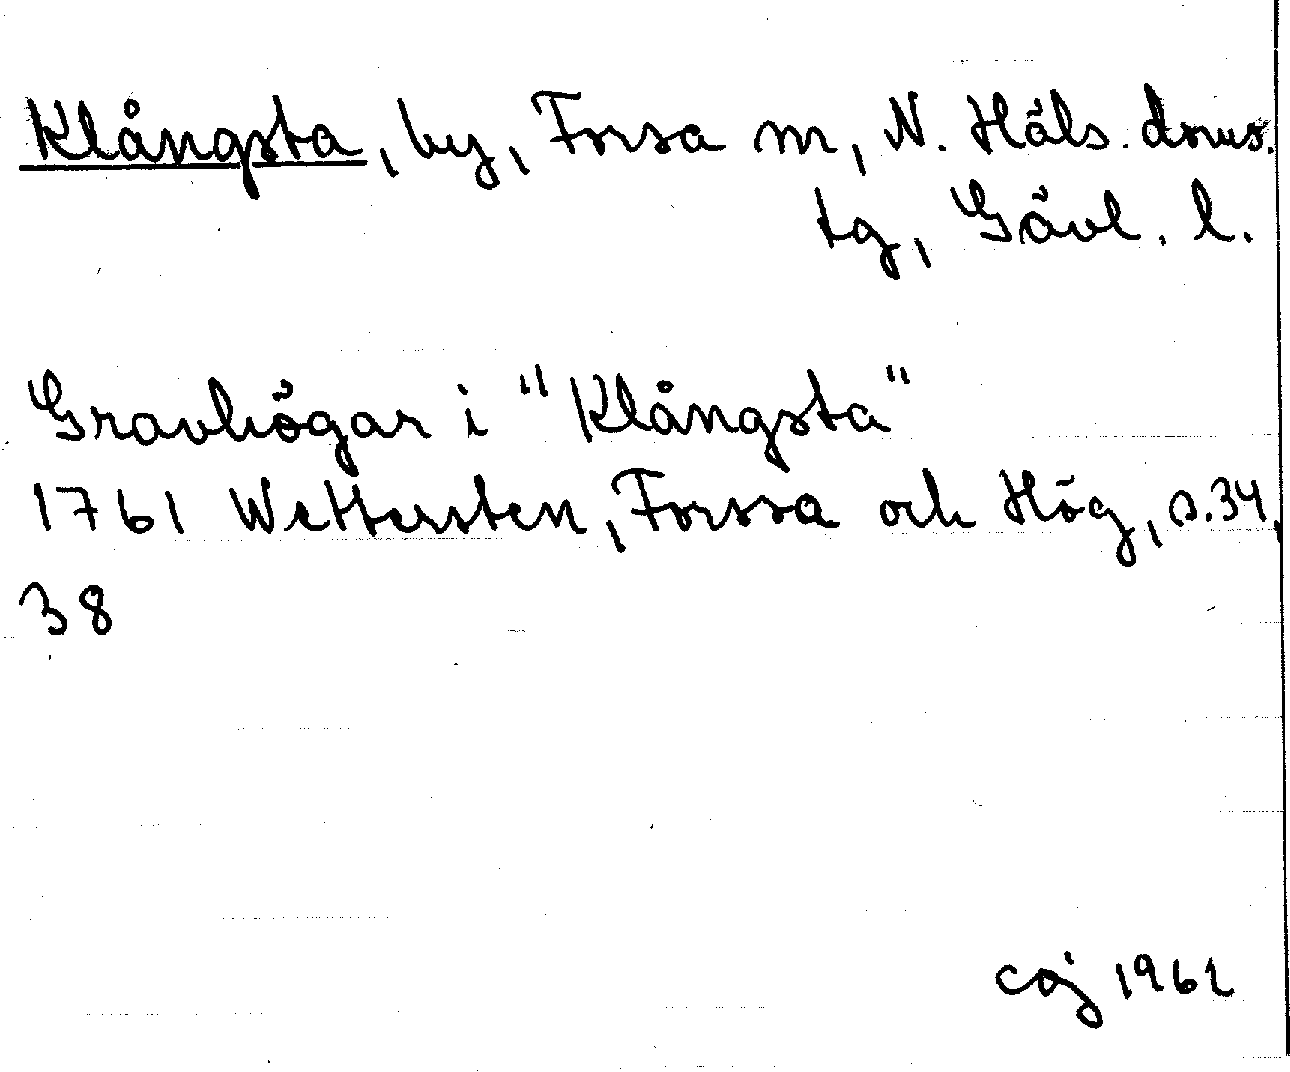 Klångsta, by, Forsa sn, N. Häls. doms.
tg, Gävl. l.
Gravhögar i "Klångsta"
1761 Wettersten, Forssa och Hög, s. 34,
38
caj 1961